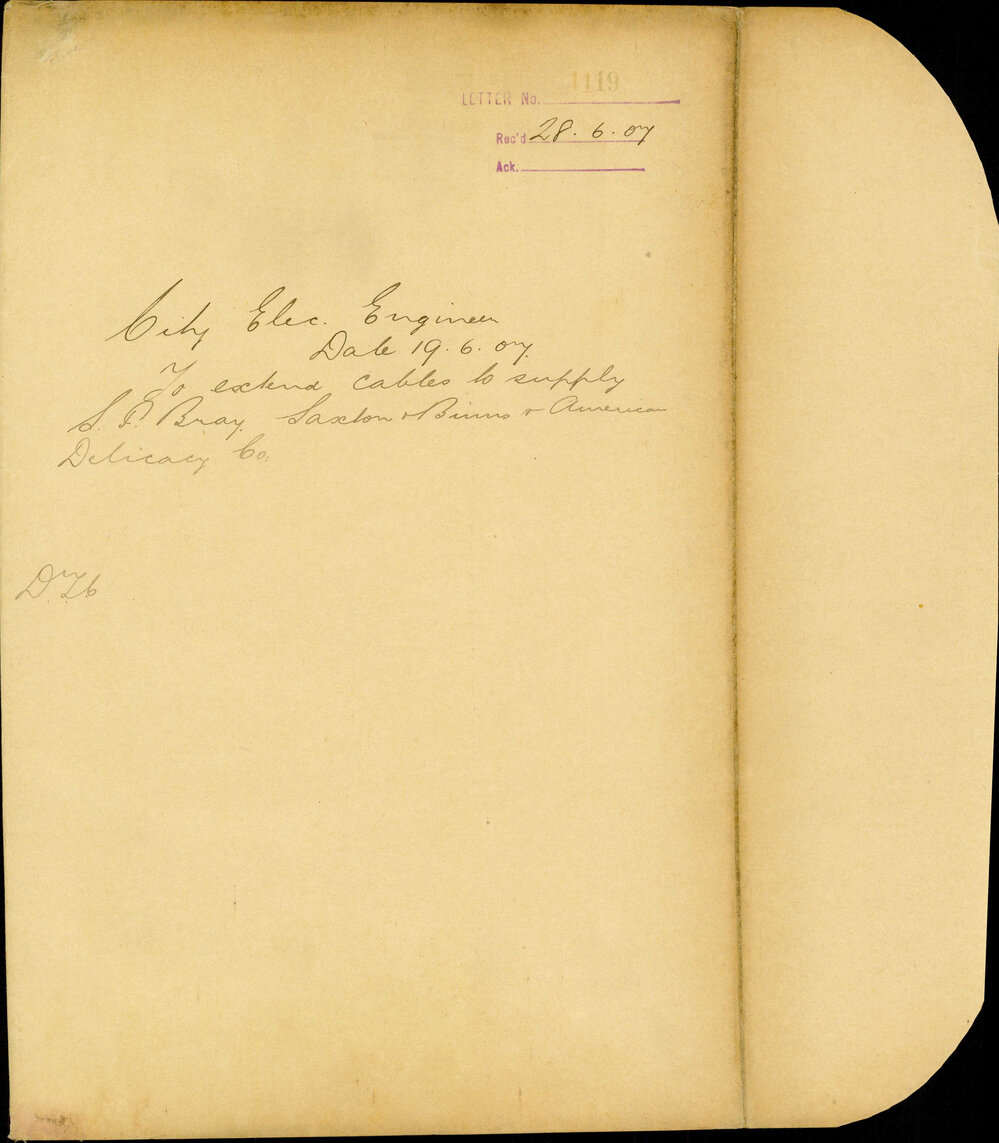 1119
LETTER No.
Rec'd 28.6.07
Ack.
City Elec. Engineer
Date 19.6.07.
To extend cables to supply
S. P. Bray. Saxton & Binns & American
Delicacy Co.